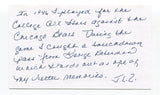 In 1946 I played for the
College All Stars against the
Chicago Bears. During the
game I caught a touchdown
pass from George Ratterman
which stands out as one of
my better memories. J.L.Z.